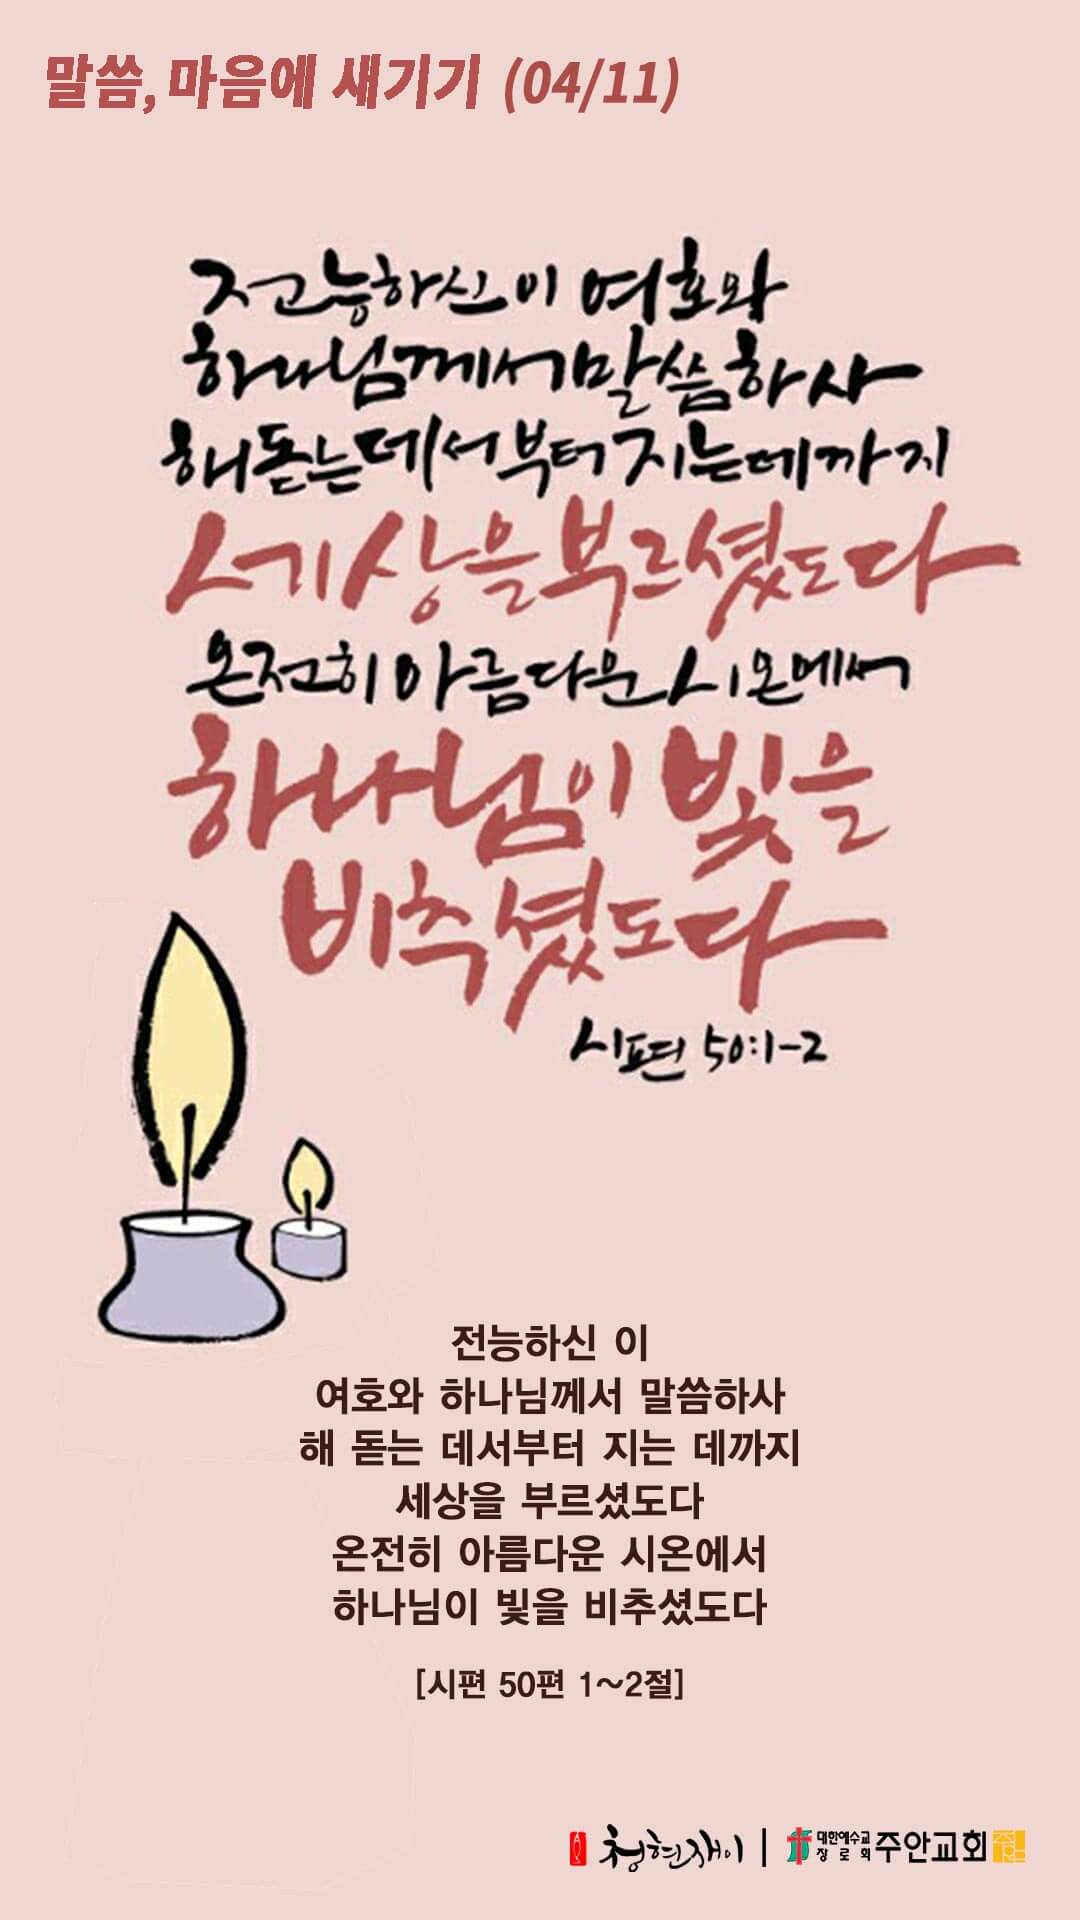 말씀, 마음에 새기기 (04/11)
전능하신 이 여호와
하나님께서 말씀하사
해 돋는 데서부터 지는 데까지
세상을 부르셨도다
온전히 아름다운 시온에서
하나님이 빛을
비추셨도다
시편 50:1-2
전능하신 이
여호와 하나님께서 말씀하사
해 돋는 데서부터 지는 데까지
세상을 부르셨도다
온전히 아름다운 시온에서
하나님이 빛을 비추셨도다
[시편 50편 1~2절]
청현재이 | 대한예수교 장로회 주안교회